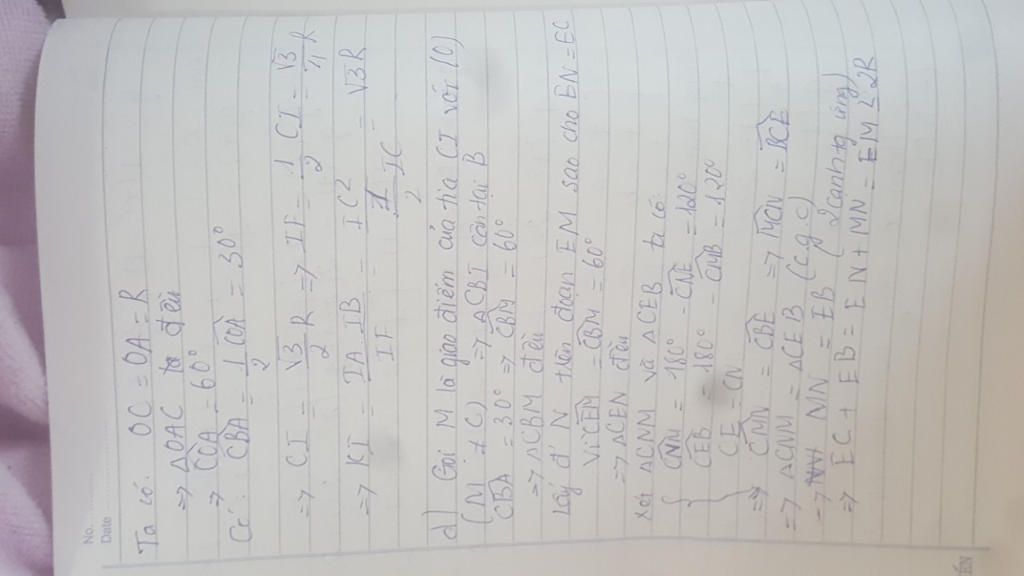 No.
Date
Ta có: OC = OA = R
=> ΔOAC đều
=> COA = 60°
Có: CBA = 1/2 COA = 30°
=> CI = √3/2 R => IF = 1/2 CI = √3/4 R
=> KI = IA.IB/IF = IC²/(1/2 IC) = √3R
d) Gọi M là giao điểm của tia CI với (O)
(M ≠ C) => ΔCBI cân tại B
CBA = 30° => CBM = 60°
=> ΔCBM đều
Lấy đ' N trên đoạn EM sao cho EN = EC
Vì CEM = CBM = 60°
=> ΔCEN đều
Xét ΔCNM và ΔCEB ta có
CNM = 180° - CNE = 120°
CEB = 180° - CMB = 120°
CE = CN
=> CMN = CBE => MCN = BCE
=> ΔCNM = ΔCEB (c.g.c)
=> MN = EB (2 cạnh tg ứng)
=> EC + EB = EN + MN = EM ≤ 2R